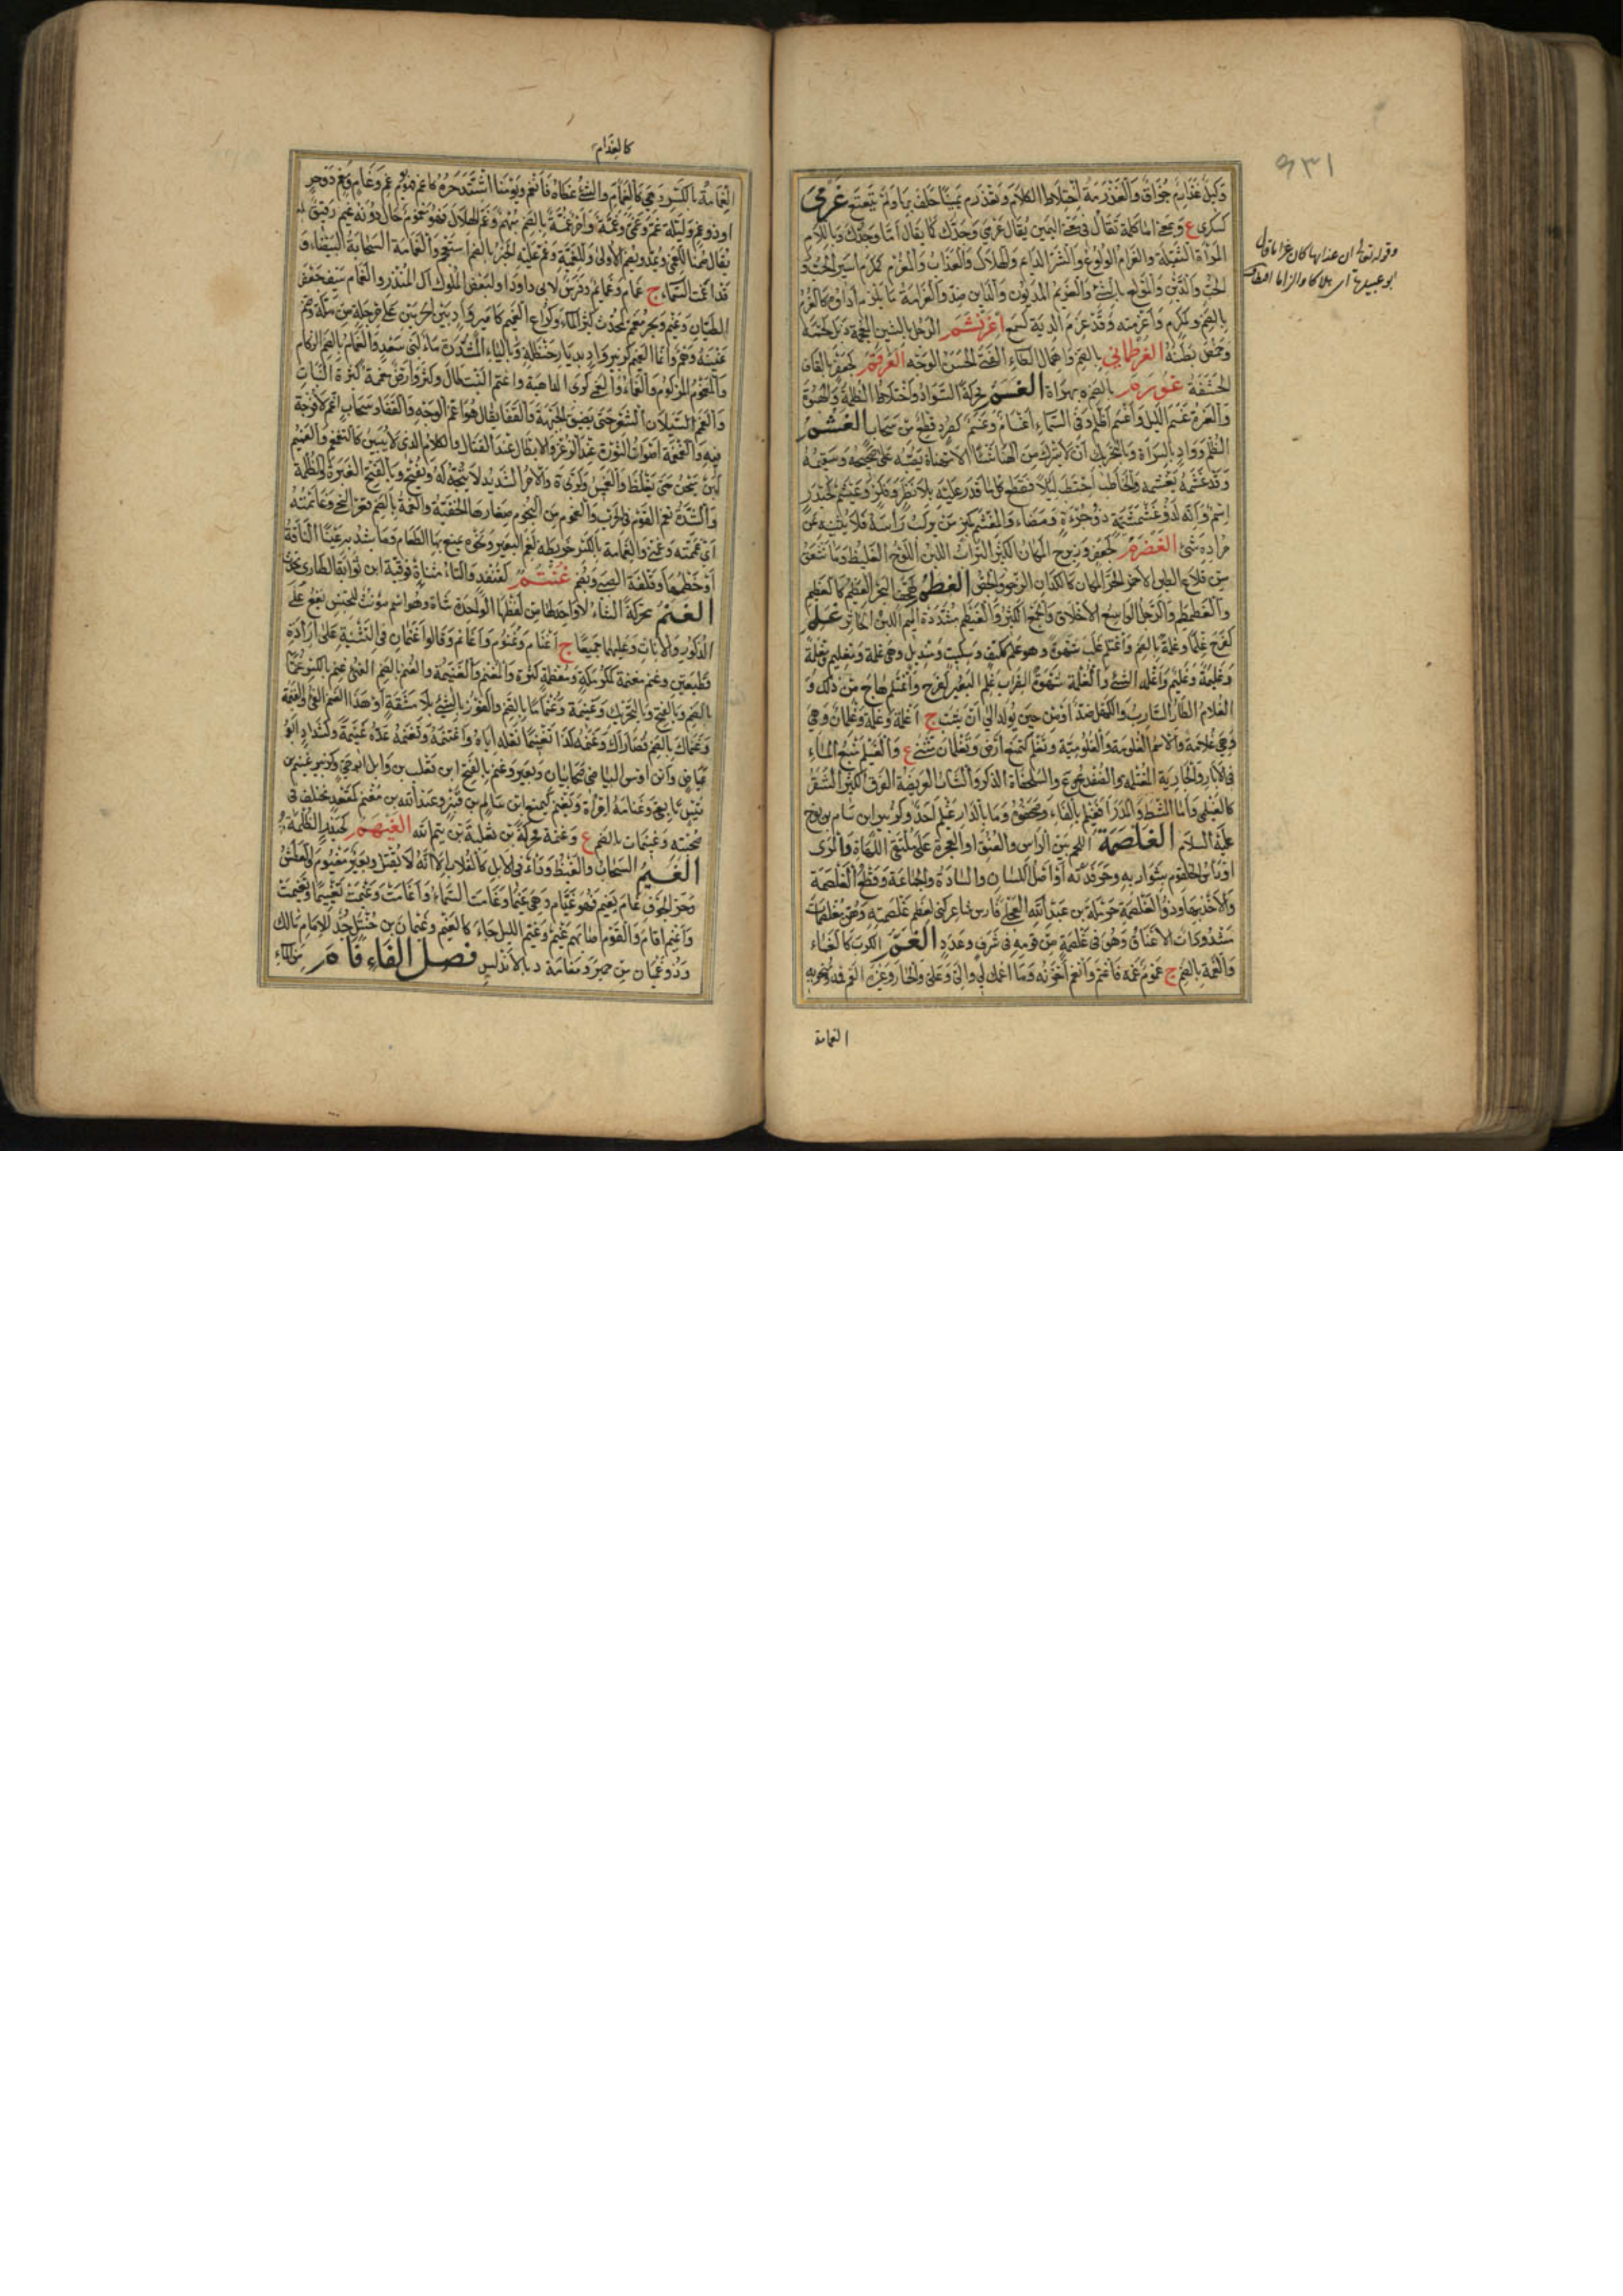 ٩٣١
وكيل غذارم جزاف والغذرمة اختلاط الكلام وتغذرم يمينا حلف بها ولم يتتعتع غرمى
كسكرى ع وبمعنى اما كلمة تقال في معنى اليمين يقال غرمى وجدك كما يقال اما وجدك وباللام
المرأة الثقيلة والغرام الولوع والشر الدائم والهلاك والعذاب والمغرم كمكرم اسير الحب و
الدين والمولع بالشئ والغريم المديون والدائن ضد والغرامة ما يلزم اداؤه كالغرم
بالضم وكمكرم واغرمته وقد غرم الدية كسمع اغرنشم الرجل بالشين المعجمة ذبل لحمه
وخمص بطنه الغرطماني بالضم واهمال الطاء الفتى الحسن الوجه الغرقم كجعفر بالقاف
الحشفة غورم بالضم ة بهراة الغسم محركة السواد واختلاط الظلمة والهبوة
والغبرة غسم الليل واغسم اظلم وفي السماء اغسام وغسم كصرد قطع من سحاب الغشم
الظلم وواد بالسراة وبالتحريك ان لا يترك من الهناء شئ الا يتهنأ به
وقد غشمه يغشمه والحاطب احتطب ليلا فقطع كل ما قدر عليه بلا نظر وفكر وغيشم كحيدر
اسم وانه لذو غشمشمة ذو جرءة ومضاء والمغشم كمنبر من يركب رأسه فلا يثنيه عن
مراده شئ الغضرم كجعفر وزبرج المكان الكثير التراب اللين اللزج الغليظ وما تشقق
من قلاع الطين الاحمر الحر والمكان كالكذان الرخو والجص الغطم كهجف البحر العظيم كالغطيم
والغطمطم والرجل الواسع الاخلاق والجمع الكثير والغيطم مشددة الميم اللبن الخاثر غلم
كفرح غلما وغلمة بالضم واغتلم غلب شهوة وهو غلم ككتف وسكيت ومنديل وهي غلمة ومغليم مغلمة
وغليمة وغليم واغلمه الشئ والغلمة شهوة الضراب غلم البعير كفرح واغتلم هاج من ذلك و
الغلام الطار الشارب والكهل ضد او من حين يولد الى ان يشب ج اغلمة وغلمة وغلمان وهي
وهي غلامة والاسم الغلومة والغلومية وتغلم كتمنع ارض وتغلمان مثنى ع والغيلم منبع الماء
في الآبار والجارية المغتلمة والضفدع وع والسلحفاة الذكر والشاب العريض المفرق الكثير الشعر
كالغيلمي واما المشط والمدرى فغيلم بالفاء وصحف وما بالدار غيلم احد وكزبير ابن سام بن نوح
عليه السلام الغلصمة اللحم بين الرأس والعنق او العجرة على ملتقى اللهاة والمرئ
او رأس الحلقوم بشواربه وحرقدته او اصل اللسان والسادة والجماعة وقطع الغلصمة
والاخذ بها وذو الغلصمة حرملة بن عبد الله العجلي فارس شاعر كني لعظم غلصمته وهن مغلصمات
مشدودات الاعناق وهو في غلصمة من قومه في شرف وعدد الغم الكرب كالغماء
والغمة بالضم ج غموم غمه فاغتم وانغم احزنه وما اغمك لي والي وعلي والحمار وغيره القم فمه ومنخريه
وقوله تعالى ان عذابها كان غراما قال
ابو عبيدة اى هلاكا والزاما
الغمامة
كالغدام
الغمامة بالكسر وهي كالفدام والشئ غطاه فانغم ويومنا اشتد حره كاغم فهو يوم غم وغام ومغم ذو حر
او ذو غم وليلة غم وغمى وغمة وامر غمة بالضم مبهم وغم الهلال فهو مغموم حال دونه غيم رقيق
يقال صمنا للغمى وتمد ويضم الاولى وللغمية وغم عليه الخبر بالضم استعجم والغمامة السحابة البيضاء و
قد اغمت السماء ج غمام وغمائم وفرس لابي داود او لبعض الملوك آل المنذر والغمام سيف جعفر
الطيان وغيم وبحر مغم كمحدث كثير الماء وكراع الغميم كامير واد بين الحرمين على مرحلتين من مكة
وضم غينه وهم وانما الغميم كزبير واد بديار حنظلة وبالياء المشددة ماء لبني سعد والغمام بالضم الزكام
والمغموم المزكوم والغماء والغمى كربى الداهية واغتم النبت طال وكثر وارض غمة كثيرة النبات
والغمم السيلان الشعر حتى يضيق الجبهة والقفا يقال هو اغم الوجه والقفا وسحاب اغم لا فرجة
فيه والغمغمة اصوات الثورة عند الذعر والابطال عند القتال والكلام الذي لا يبين كالتغمغم والغميم
لبن يسخن حتى يغلظ والغميس وكربى ة والامر الشديد لا يتجه له ويفتح وبالفتح الغبرة والظلمة
والشدة تغم القوم في الحرب والغموم من النجوم صغارها الخفية والغمة بالضم قعر النحى وغاممته
اى غممته وغمني والغمامة بالكسر خريطة لفم البعير ونحوه يمنع بها الطعام وما يشد به عينا الناقة
او خطمها وقلفة الصبي ويضم غنتم كقنفذ والتاء مثناة فوقية ابن ثوابة الطاري محدث
الغنم محركة الشاء لا واحد لها من لفظها الواحدة شاة وهو اسم مؤنث للجنس يقع على
الذكور والاناث وعليهما جميعا ج اغنام وغنوم واغانم وقالوا غنمان في التثنية على ارادة
قطيعين وغنم مغنمة كمكرمة ومعظمة كثيرة والمغنم والغنيمة والغنم بالضم الفئ غنم بالكسر غنما
بالضم وبالفتح وبالتحريك وغنيمة وغنمانا بالضم والفوز بالشئ بلا مشقة او هذا الغنم الفئ والغنيمة
وغنماك بالضم قصاراك وغنمه كذا تغنيما نفله اياه واغتنمه وتغنمه عده غنيمة وكشداد ابو
عياض وابن اوس البياضي صحابيان وبعير وغنم بالفتح ابن تغلب بن وائل ابو حي وكزبير غنيم بن
قيس تابعي وغنامة امرأة ويغنم كيمنع ابن سالم بن قنبر وعبد الله بن مغنم كمقعد مختلف في
صحبته وغنيمات بالضم ع وغنمة محركة بن ثعلبة بن تيم الله الغيهم كحيدر الظلمة
الغيم السحاب والغيظ وداء في الابل كالقلاب الا انه لا يقتل وبعير مغيوم والعطش
وحر الجوف غام يغيم فهو غيمان وهي غيمى وغامت السماء واغامت وغيمت تغييما وتغيمت
واغيم اقام والقوم اصابهم غيم وغيم الليل جاء كالغيم وغيمان بن خثيل جد للامام مالك
وذو غيمان من حمير ومغامة د بالاندلس فصل الفاء فام من الماء